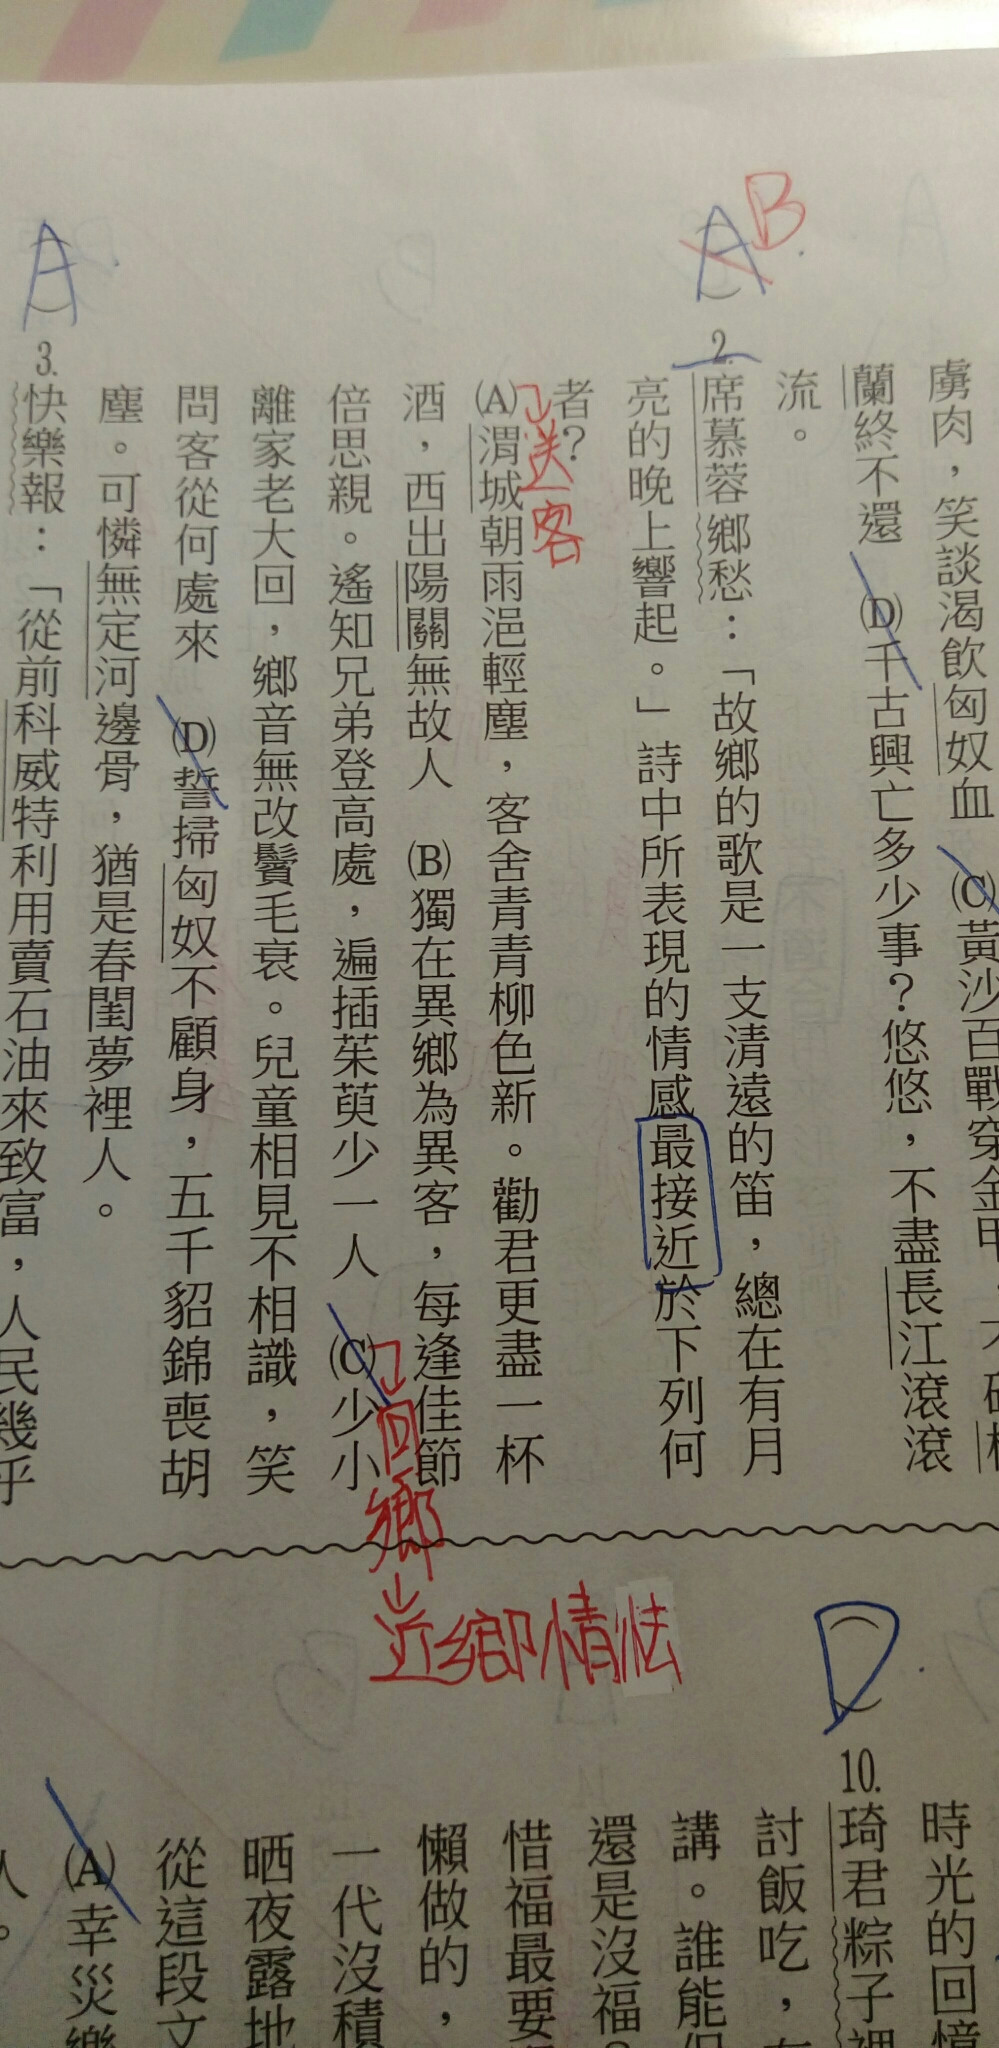 虜肉，笑談渴飲匈奴血 (C)黃沙百戰穿金甲，不破
蘭終不還 (D)千古興亡多少事？悠悠，不盡長江滾滾
流。
B
A
2.席慕蓉鄉愁：「故鄉的歌是一支清遠的笛，總在有月
亮的晚上響起。」詩中所表現的情感最接近於下列何
者？
送客
(A)渭城朝雨浥輕塵，客舍青青柳色新。勸君更盡一杯
酒，西出陽關無故人 (B)獨在異鄉為異客，每逢佳節
倍思親。遙知兄弟登高處，遍插茱萸少一人 (C)少小
離家老大回，鄉音無改鬢毛衰。兒童相見不相識，笑
問客從何處來 (D)誓掃匈奴不顧身，五千貂錦喪胡
塵。可憐無定河邊骨，猶是春閨夢裡人。
回鄉
近鄉情怯
A
3.快樂報：「從前科威特利用賣石油來致富，人民幾乎
時光的回憶
D
10.琦君粽子裡
討飯吃，
講。誰能
還是沒福
惜福最要
懶做的，
一代沒積
晒夜露地
從這段文
(A)幸災樂
人。